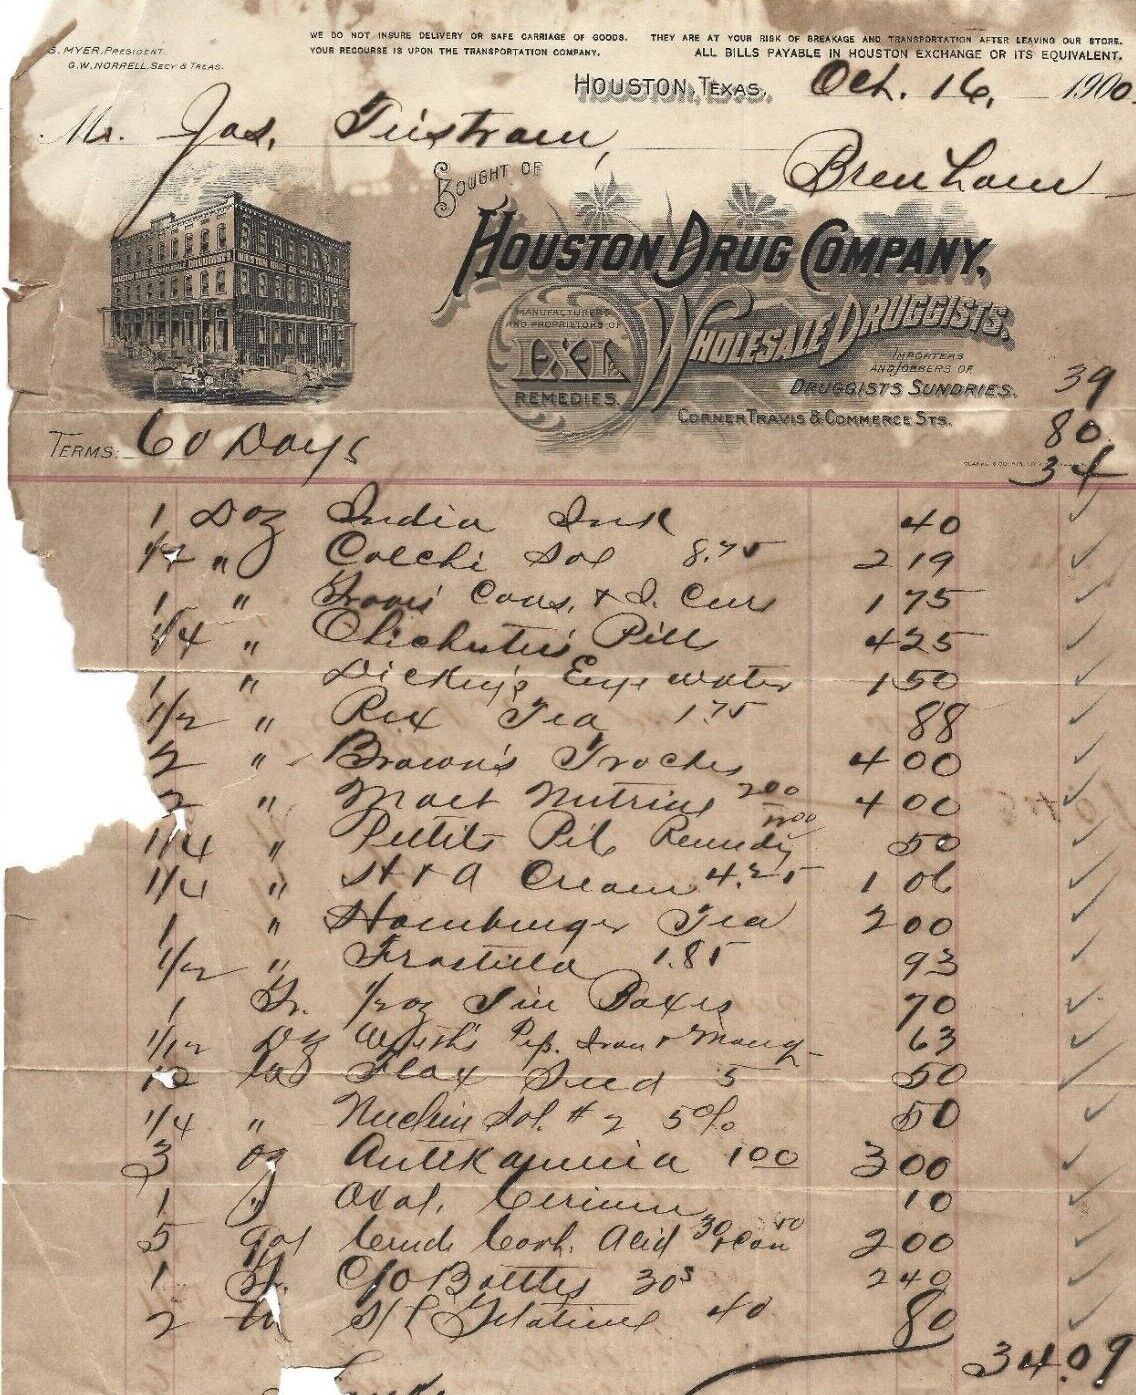 S. MYER, PRESIDENT.
G.W. NORRELL, SECY & TREAS.
WE DO NOT INSURE DELIVERY OR SAFE CARRIAGE OF GOODS. THEY ARE AT YOUR RISK OF BREAKAGE AND TRANSPORTATION AFTER LEAVING OUR STORE.
YOUR RECOURSE IS UPON THE TRANSPORTATION COMPANY. ALL BILLS PAYABLE IN HOUSTON EXCHANGE OR ITS EQUIVALENT.
HOUSTON, TEXAS, Oct. 16, 1900.
Mr. Jas. Tristram,
Brenham
BOUGHT OF
HOUSTON DRUG COMPANY,
WHOLESALE DRUGGISTS.
MANUFACTURERS AND PROPRIETORS OF
I.X.L.
REMEDIES.
IMPORTERS AND JOBBERS OF
DRUGGISTS SUNDRIES.
CORNER TRAVIS & COMMERCE STS.
39
80
34
TERMS: 60 Days
1 Doz India Ink 40
1/4 " Colchi Sol 8.75 2 19
1 " Cons. & D. Cure 1 75
1/4 " Chichester's Pills 4 25
1 " Dickey's Eye water 1 50
1/2 " Rex Tea 1.75 88
2 " Brown's Troches 4 00
2 " Malt Nutrine 2 00 4 00
1/4 " Pettits Pile Remedy 50
1/4 " H & A Cream 4.25 1 06
1 " Hamburger Tea 2 00
1/2 " Frostilla 1.85 93
1 Gr. 1/2 oz Tin Boxes 70
1/12 Dz Wyeth's Pep. Iron & Mang 63
10 Flax Seed 5 50
1/4 " Sol. # 2 5% 50
3 oz Antikamnia 1 00 3 00
1 " Oxal. Cerium 10
5 Gal Crude Carb. Acid 30 & Can 50 2 00
1 Gr. C/O Bottles 30s 2 40
2 S/L Gelatine 40 80
34.09